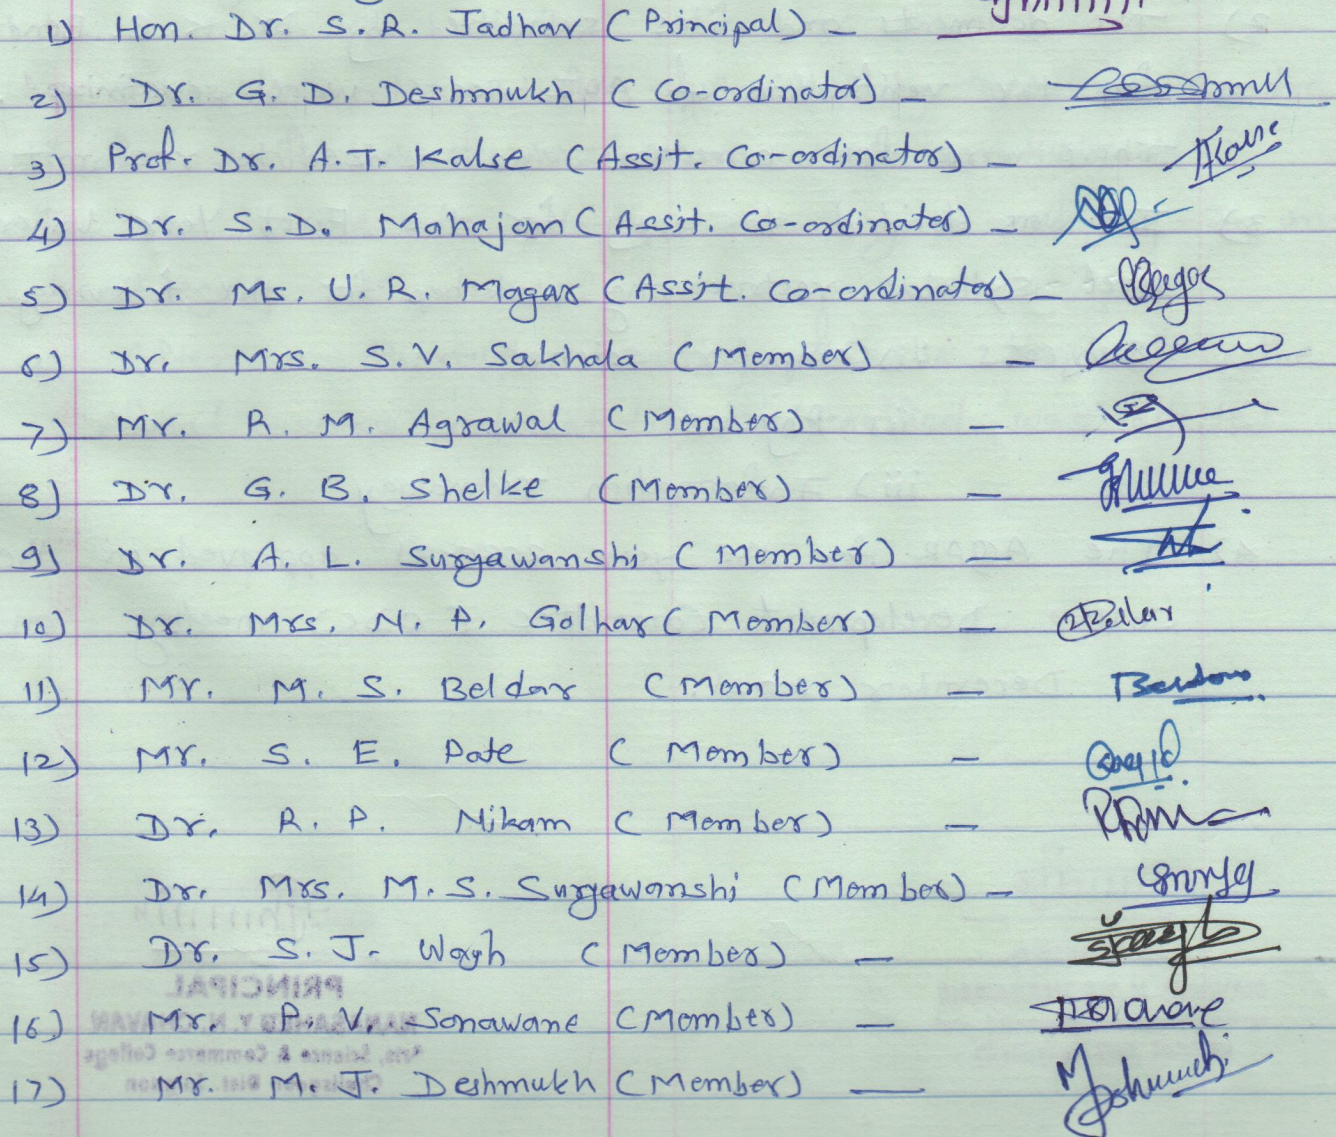 1) Hon. Dr. S. R. Jadhav (Principal) –
2) Dr. G. D. Deshmukh (Co-ordinator) –
3) Prof. Dr. A. T. Kalse (Assit. Co-ordinator) –
4) Dr. S. D. Mahajan (Assit. Co-ordinator) –
5) Dr. Ms. U. R. Magar (Assit. Co-ordinator) –
6) Dr. Mrs. S. V. Sakhala (Member) –
7) Mr. R. M. Agrawal (Member) –
8) Dr. G. B. Shelke (Member) –
9) Dr. A. L. Suryawanshi (Member) –
10) Dr. Mrs. N. P. Golhar (Member) –
11) Mr. M. S. Beldar (Member) –
12) Mr. S. E. Pate (Member) –
13) Dr. R. P. Nikam (Member) –
14) Dr. Mrs. M. S. Suryawanshi (Member) –
15) Dr. S. J. Wagh (Member) –
16) Mr. P. V. Sonawane (Member) –
17) Mr. M. J. Deshmukh (Member) –